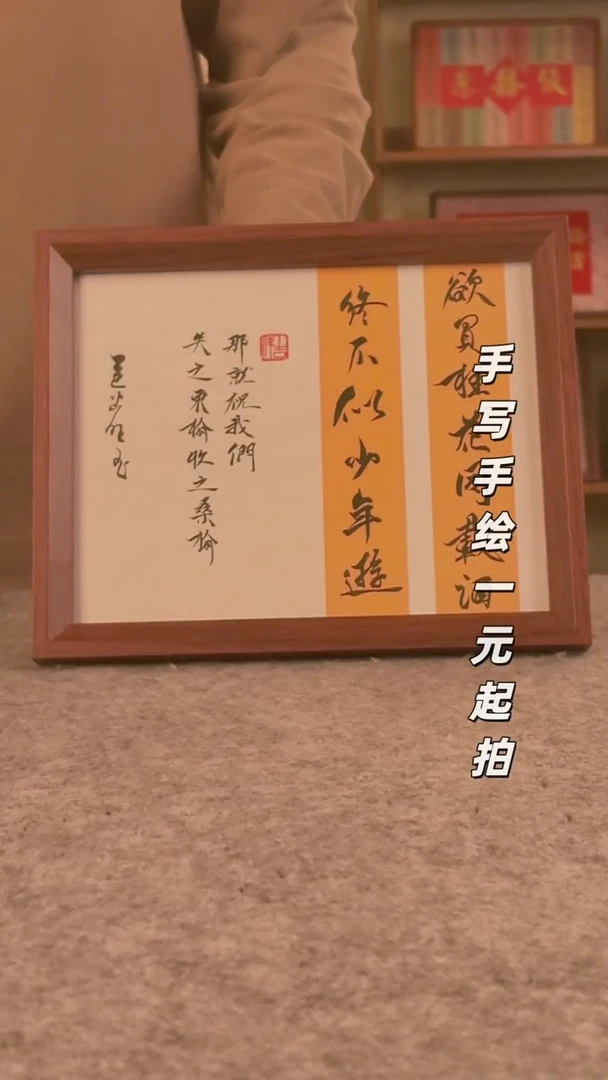 欲買桂花同載酒
終不似少年遊
那就祝我們
失之東榆收之桑榆
手写手绘一元起拍